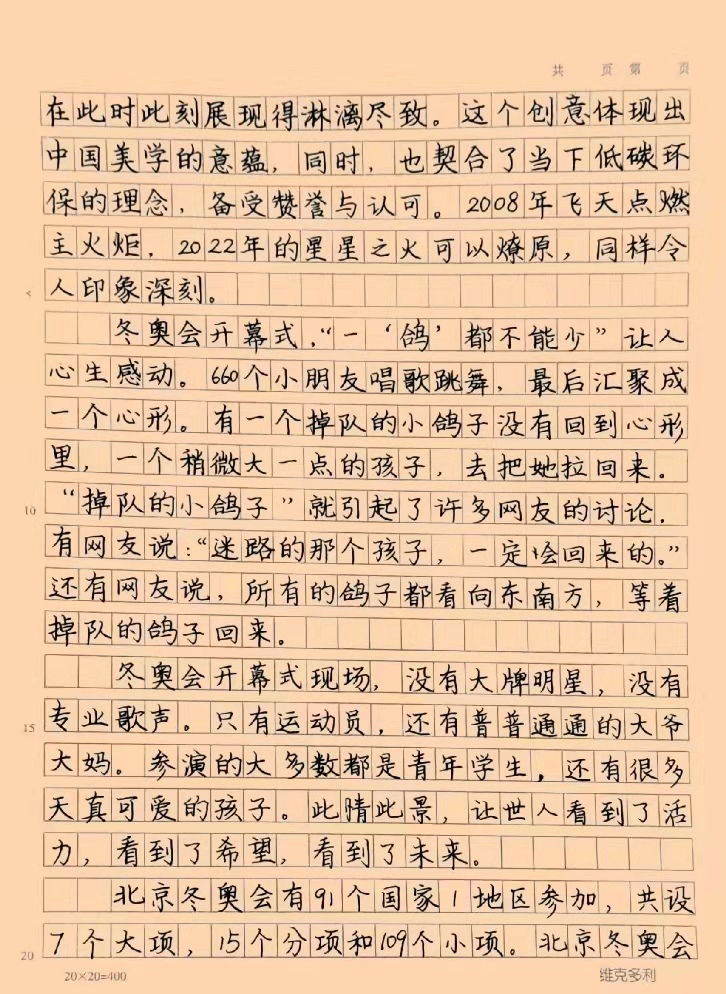 共 页 第 页
在此时此刻展现得淋漓尽致。这个创意体现出
中国美学的意蕴,同时,也契合了当下低碳环
保的理念,备受赞誉与认可。2008年飞天点燃
主火炬,2022年的星星之火可以燎原,同样令
人印象深刻。
冬奥会开幕式,“一‘鸽’都不能少”让人
心生感动。660个小朋友唱歌跳舞,最后汇聚成
一个心形。有一个掉队的小鸽子没有回到心形
里,一个稍微大一点的孩子,去把她拉回来。
10 “掉队的小鸽子”就引起了许多网友的讨论,
有网友说:“迷路的那个孩子,一定会回来的。”
还有网友说,所有的鸽子都看向东南方,等着
掉队的鸽子回来。
冬奥会开幕式现场,没有大牌明星,没有
15 专业歌声。只有运动员,还有普普通通的大爷
大妈。参演的大多数都是青年学生,还有很多
天真可爱的孩子。此情此景,让世人看到了活
力,看到了希望,看到了未来。
北京冬奥会有91个国家/地区参加,共设
20 7个大项,15个分项和109个小项。北京冬奥会
20×20=400 维克多利